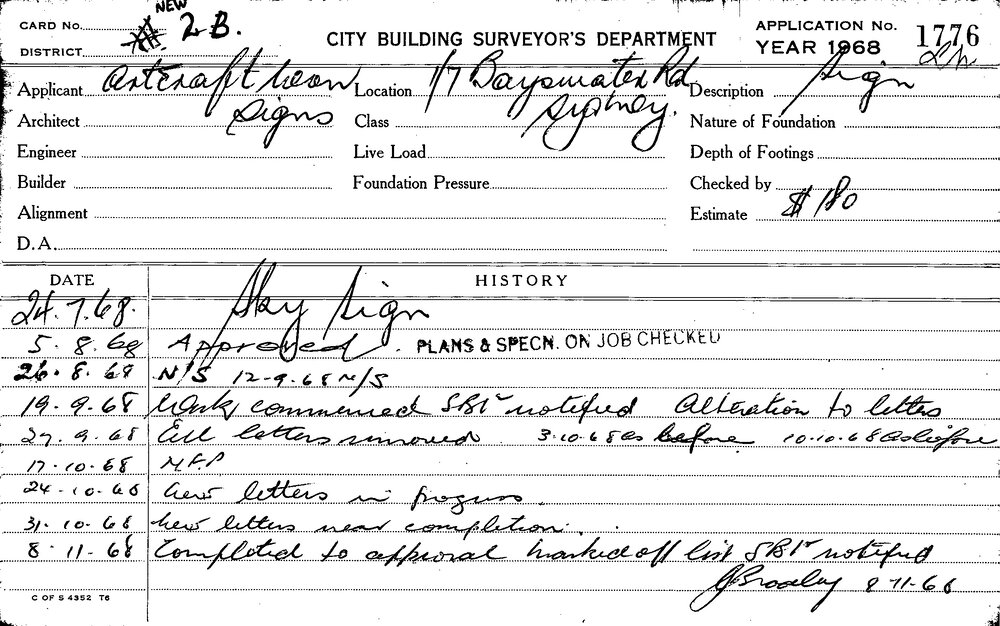 CARD No. NEW 2B.
DISTRICT
CITY BUILDING SURVEYOR'S DEPARTMENT
APPLICATION No. 1776
YEAR 1968
Applicant Artcraft Neon Signs
Location 1/7 Bayswater Rd Sydney.
Description Sign
Architect
Class
Nature of Foundation
Engineer
Live Load
Depth of Footings
Builder
Foundation Pressure
Checked by
Alignment
Estimate $180
D.A.
DATE HISTORY
24.7.68. Sky Sign
5.8.68 Approved. PLANS & SPECN. ON JOB CHECKED
26.8.68 N/S 12-9-68 N/S
19.9.68 Work commenced notified Alteration to letters
27.9.68 All letters removed 3-10-68 as before 10-10-68 as before
17-10-68
24-10-68 New letters in progress.
31-10-68 New letters near completion.
8-11-68 Completed to approval marked off list notified
8-11-68
C OF S 4352 T6